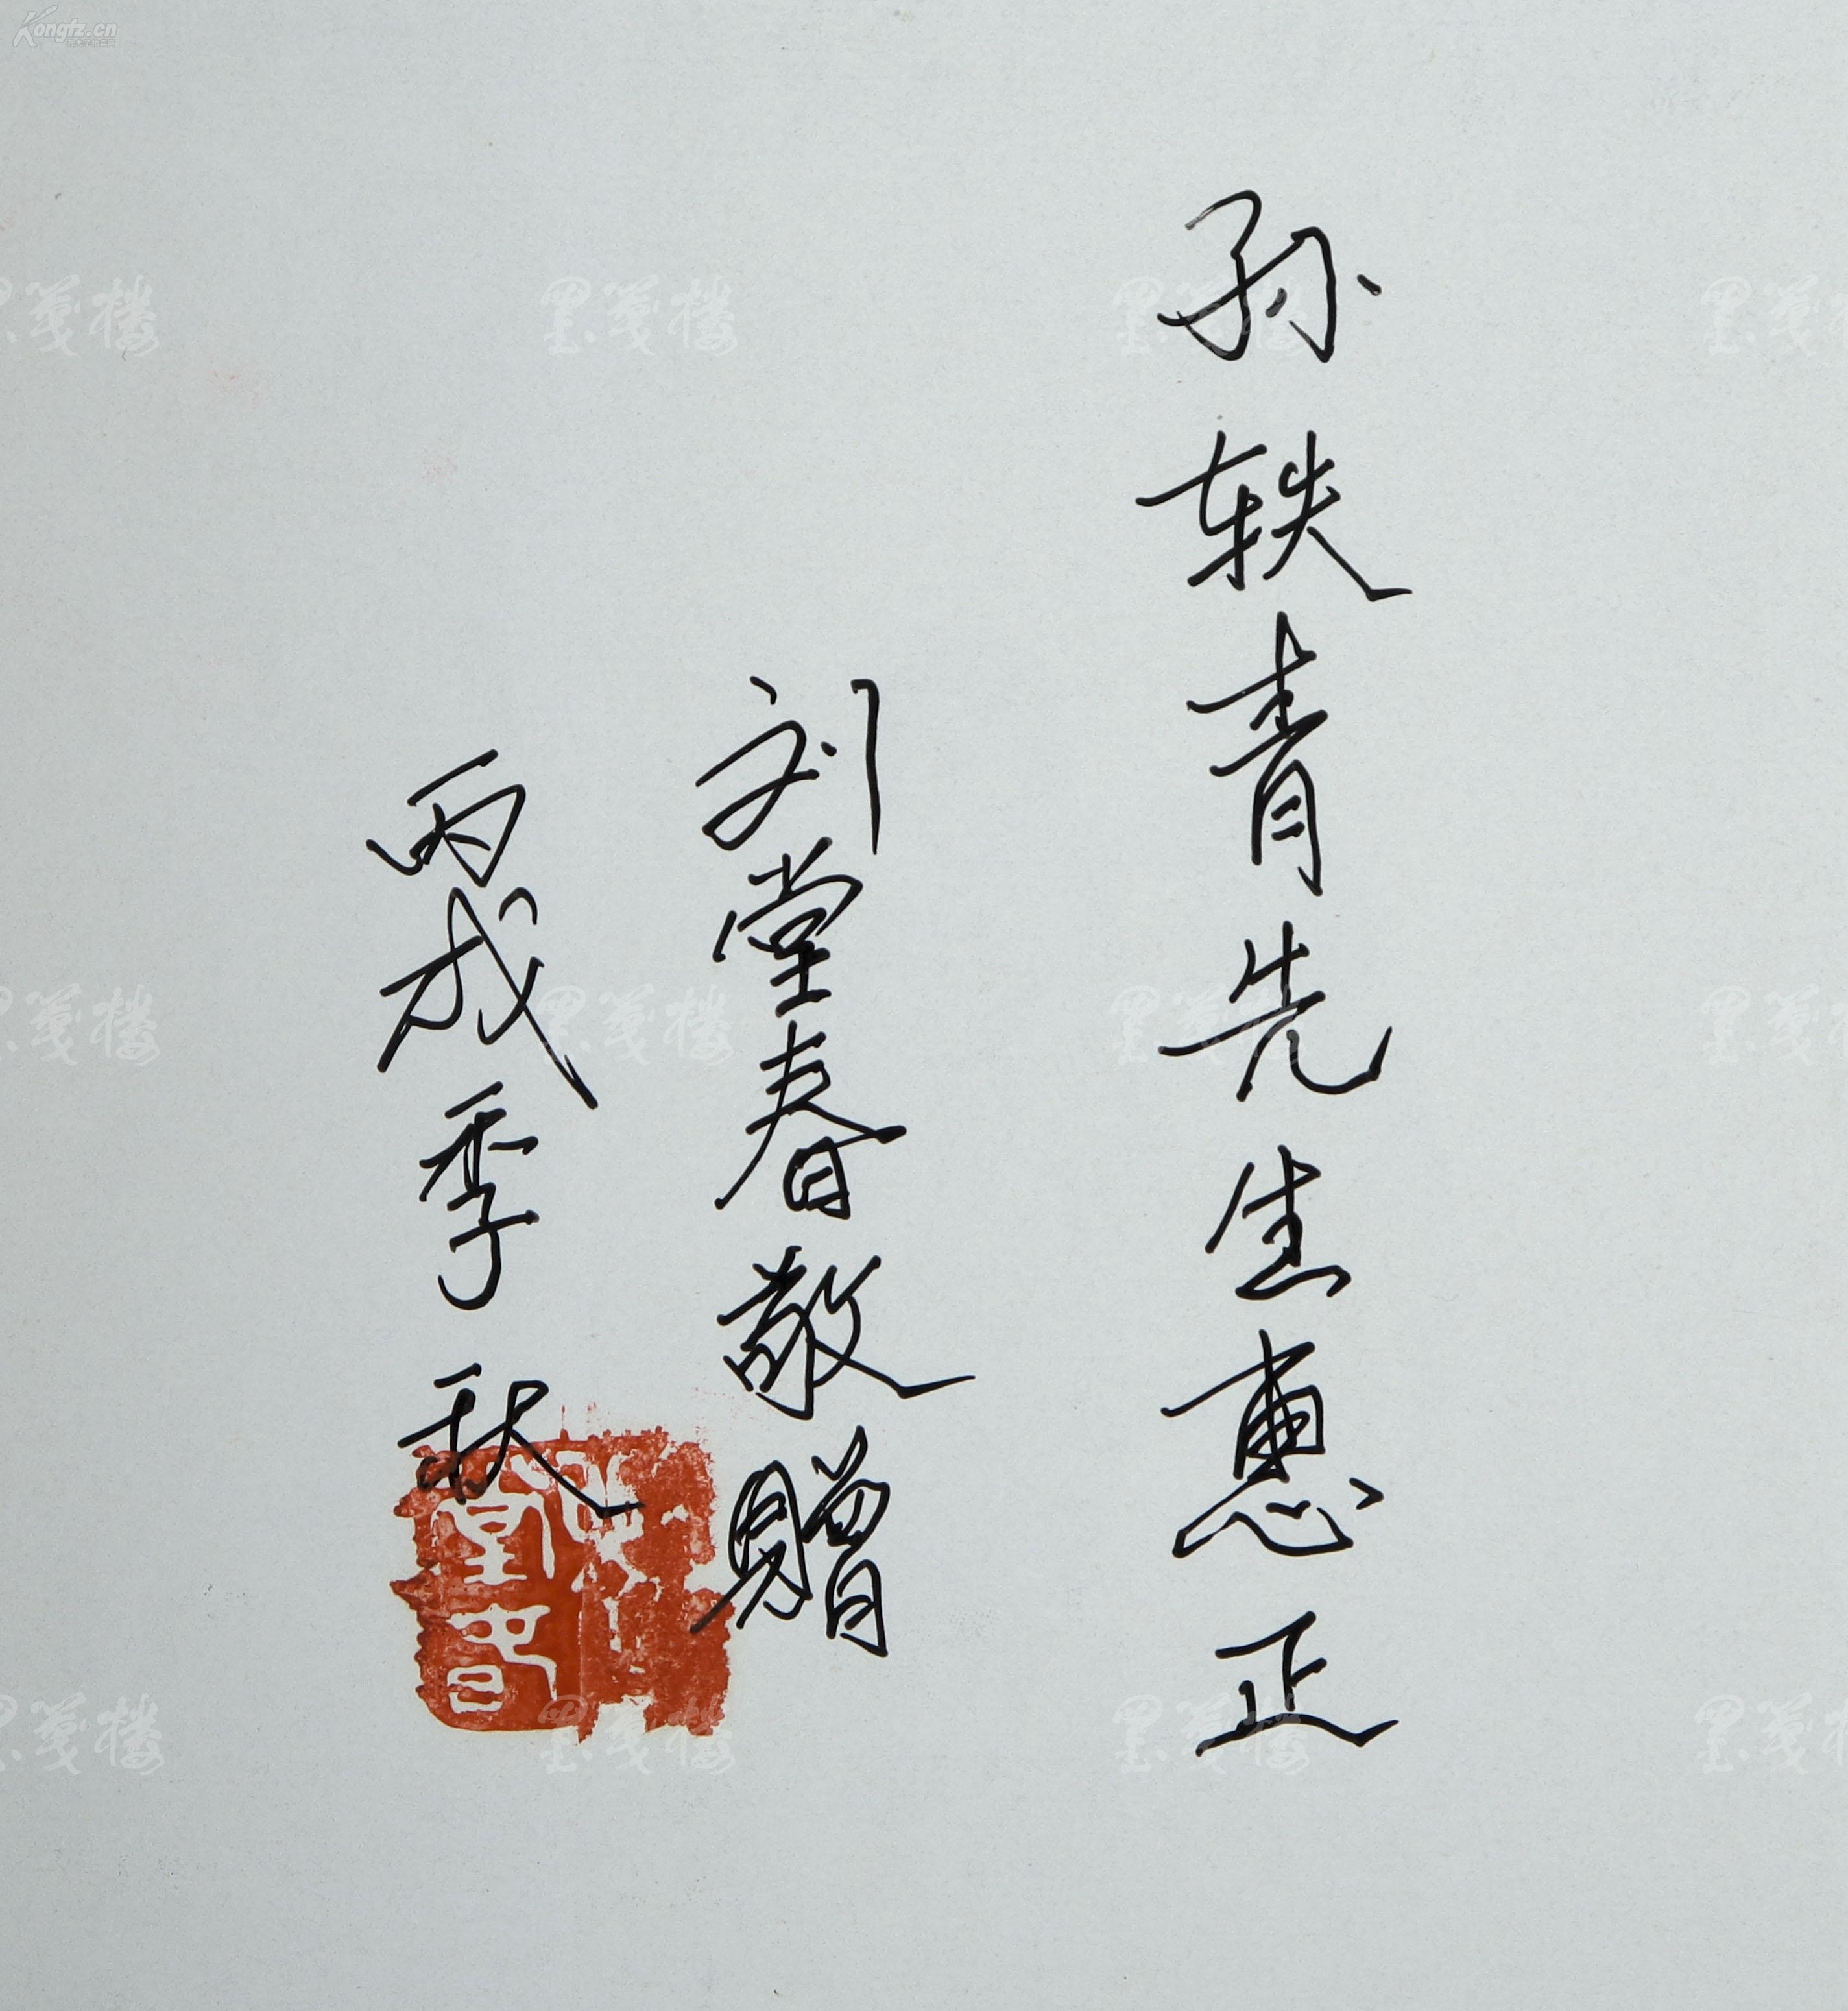 孙轶青先生惠正
刘堂春敬赠
丙戌季秋
堂春
Kongfz.cn
墨笺楼